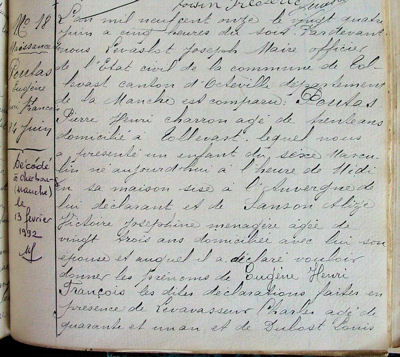 N° 18
Naissance
Poutas
Eugène
Henri François
24 juin
Décédé
à cherbourg
(manche)
le
13 février
1992
L'an mil neuf cent onze le vingt quatre
juin a cinq heures du soir Pardevant
nous Levaslot Joseph Maire officier
de l'Etat civil de la commune de Tol-
levast canton d'Octeville département
de la Manche est comparu: Poutas
Pierre Henri charron agé de trente ans
domicilié a Tollevast lequel nous
a présenté un enfant du sexe Mascu-
lin né aujourd'hui a l'heure de Midi
en sa maison sise à l'Auvergne de
lui déclarant et de Sanson Alize
Victoire Joséphine menagère âgée de
vingt trois ans domiciliée avec lui son
epouse et auquel il a déclaré vouloir
donner les prénoms de Eugène Henri
François les dites déclarations faites en
presence de Levavasseur Charles agé de
quarante et un an et de Dubost Louis